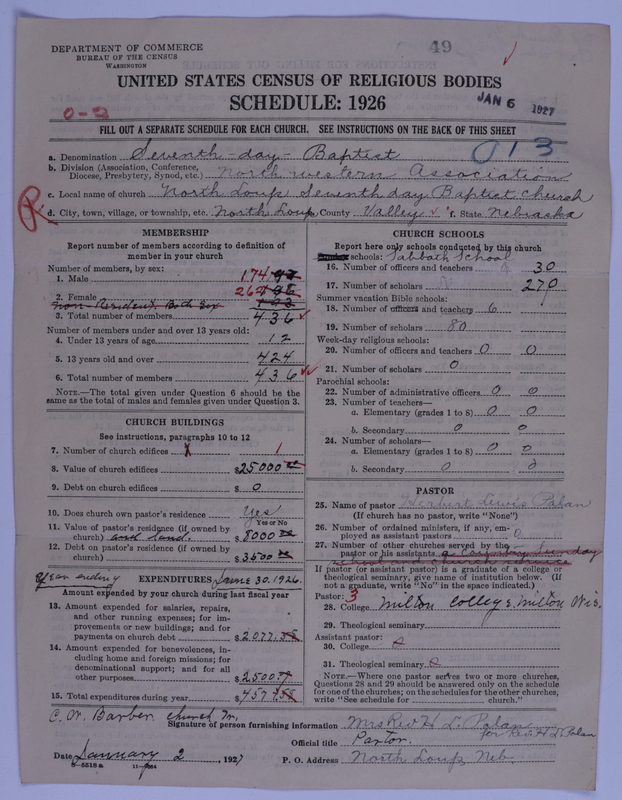 DEPARTMENT OF COMMERCE
BUREAU OF THE CENSUS
WASHINGTON
49
UNITED STATES CENSUS OF RELIGIOUS BODIES
SCHEDULE: 1926
JAN 6 1927
0-2
FILL OUT A SEPARATE SCHEDULE FOR EACH CHURCH. SEE INSTRUCTIONS ON THE BACK OF THIS SHEET
a. Denomination Seventh-day-Baptist 013
b. Division (Association, Conference, Diocese, Presbytery, Synod, etc.) North western Association
c. Local name of church North Loup Seventh day Baptist church
R
d. City, town, village, or township, etc. North Loup County Valley f. State Nebraska
MEMBERSHIP
Report number of members according to definition of
member in your church
Number of members, by sex:
1. Male 174
2. Female 262
Non-Resident Both Sex
3. Total number of members 436
Number of members under and over 13 years old:
4. Under 13 years of age 12
5. 13 years old and over 424
6. Total number of members 436
NOTE.—The total given under Question 6 should be
same as the total of males and females given under Question 3.
CHURCH BUILDINGS
See instructions, paragraphs 10 to 12
7. Number of church edifices 1
8. Value of church edifices $25000
9. Debt on church edifices $0
10. Does church own pastor's residence Yes
Yes or No
11. Value of pastor's residence (if owned by
church) and land. $8000
12. Debt on pastor's residence (if owned by
church) $3500
Year ending EXPENDITURES June 30. 1926.
Amount expended by church during last fiscal year
13. Amount expended for salaries, repairs,
and other running expenses; for im-
provements or new buildings; and for
payments on church debt $2077.58
14. Amount expended for benevolences, in-
cluding home and foreign missions; for
denominational support; and for all
other purposes $2500
15. Total expenditures during year $4577.58
CHURCH SCHOOLS
Report here only schools conducted by this church
schools: Sabbath School
16. Number of officers and teachers 30
17. Number of scholars 270
Summer vacation Bible schools:
18. Number of officers and teachers 6
19. Number of scholars 80
Week-day religious schools:
20. Number of officers and teachers 0 0
21. Number of scholars 0
Parochial schools:
22. Number of administrative officers 0 0
23. Number of teachers—
a. Elementary (grades 1 to 8) 0 0
b. Secondary 0 0
24. Number of scholars—
a. Elementary (grades 1 to 8) 0 0
b. Secondary 0 0
PASTOR
25. Name of pastor Herbert Lewis Polan
(If church has no pastor, write "None")
26. Number of ordained ministers, if any, em-
ployed as assistant pastors 0
27. Number of other churches served by the
pastor or his assistants a Country Sunday
school and church service
If pastor (or assistant pastor) is a graduate of a college or
theological seminary, give name of institution below. (If
not a graduate, write "No" in the space indicated.)
Pastor: 3
28. College Milton College, Milton Wis.
29. Theological seminary
Assistant pastor:
30. College
31. Theological seminary
NOTE.—Where one pastor serves two or more churches,
Questions 28 and 29 should be answered only on the schedule
for one of the churches; on the schedules for the other churches,
write "See schedule for church."
C. W. Barber church Tr.
Signature of person furnishing information Mrs Rev H L. Polan
for Rev. H L Polan
Official title Pastor.
Date January 2, 1927 P. O. Address North Loup, Neb.
8-5518 a